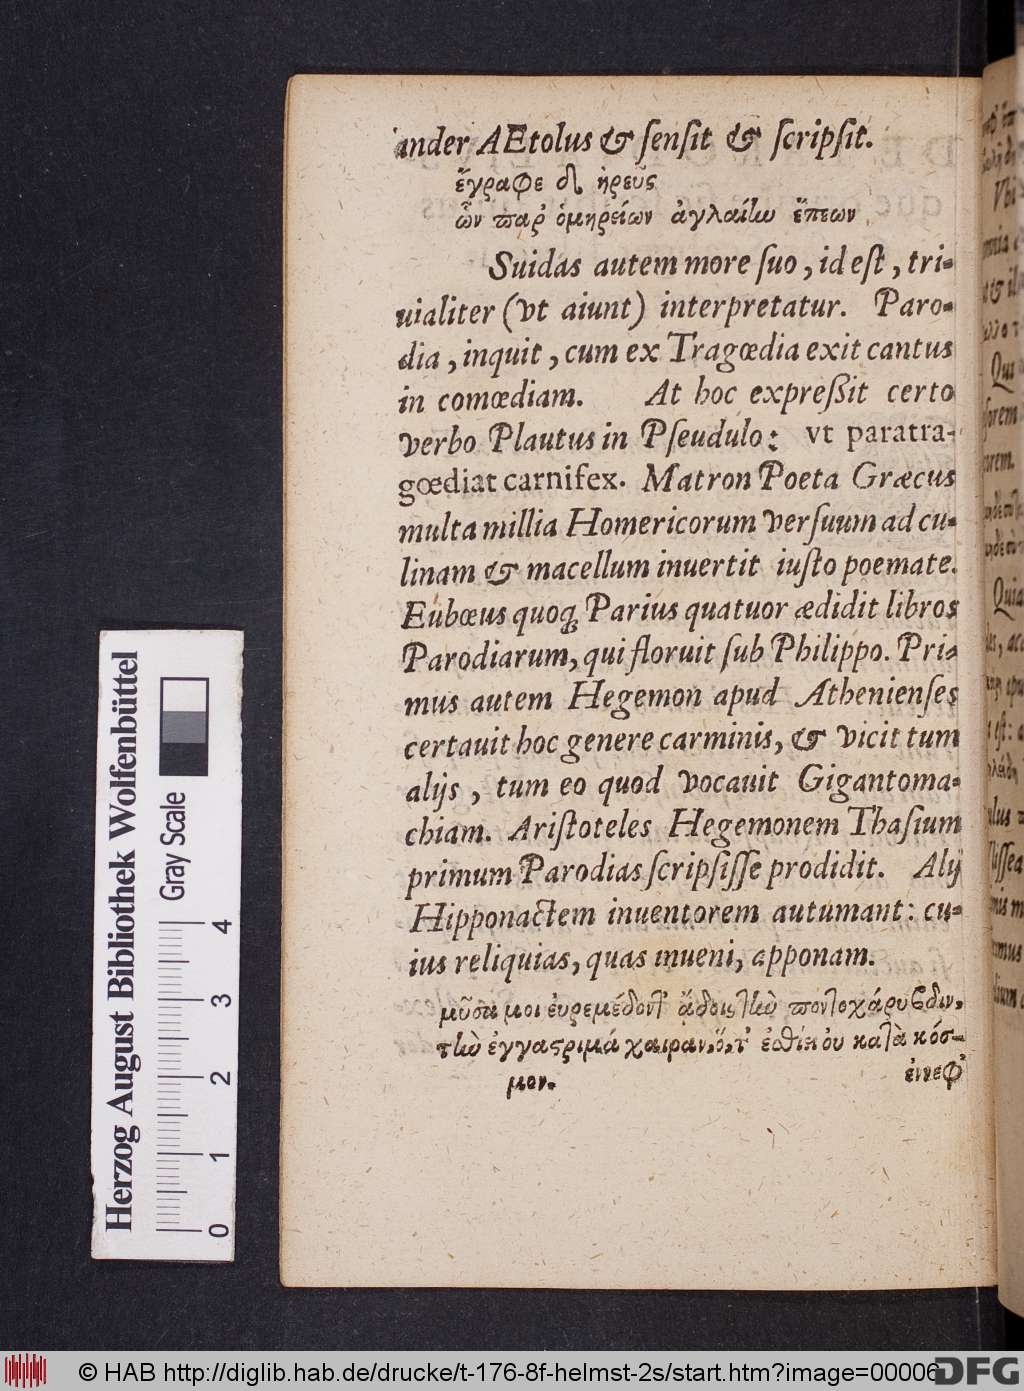 ander AEtolus & ſenſit & ſcripſit.
ἔγραφε δ' ἡρεὺς
ὧν παρ' ὁμηρείων ἀγλαίην ἔπεων
Suidas autem more ſuo, id eſt, tri-
uialiter (vt aiunt) interpretatur. Paro-
dia, inquit, cum ex Tragœdia exit cantus
in comœdiam. At hoc expreßit certo
verbo Plautus in Pſeudulo: vt paratra-
gœdiat carnifex. Matron Poeta Græcus
multa millia Homericorum verſuum ad cu-
linam & macellum inuertit iuſto poemate.
Eubœus quoq; Parius quatuor ædidit libros
Parodiarum, qui floruit ſub Philippo. Pri-
mus autem Hegemon apud Athenienſes
certauit hoc genere carminis, & vicit tum
alijs, tum eo quod vocauit Gigantoma-
chiam. Ariſtoteles Hegemonem Thaſium
primum Parodias ſcripſiſſe prodidit. Alij
Hipponactem inuentorem autumant: cu-
ius reliquias, quas inueni, apponam.
μοῦσα μοι εὐρεμέδοντ' τὴν ποντοχάρυβδιν,
τὴν ἐγγαστριμάχαιραν, ὅς τ' ἐσθίει οὐ κατὰ κόσ-
μον.
ἐννεφ'
Herzog August Bibliothek Wolfenbüttel
Gray Scale
0 1 2 3 4
© HAB http://diglib.hab.de/drucke/t-176-8f-helmst-2s/start.htm?image=00006
DFG